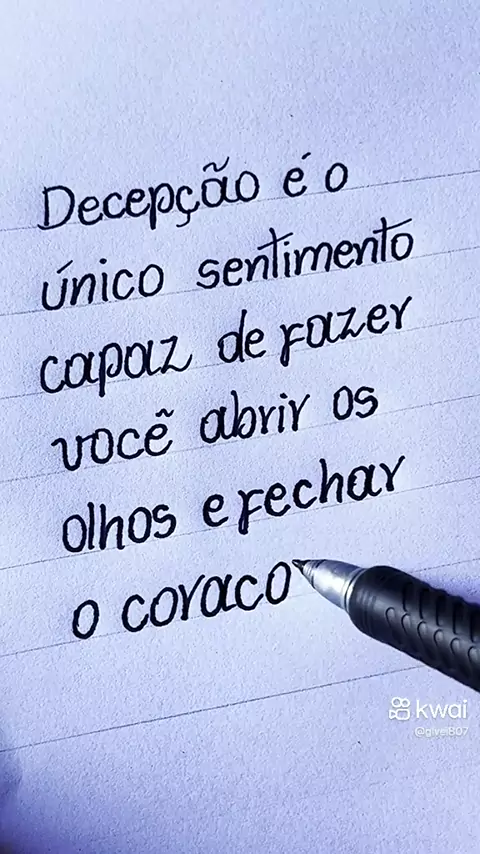 Decepção é o
único sentimento
capaz de fazer
você abrir os
olhos e fechar
o coraco
kwai
@givel807